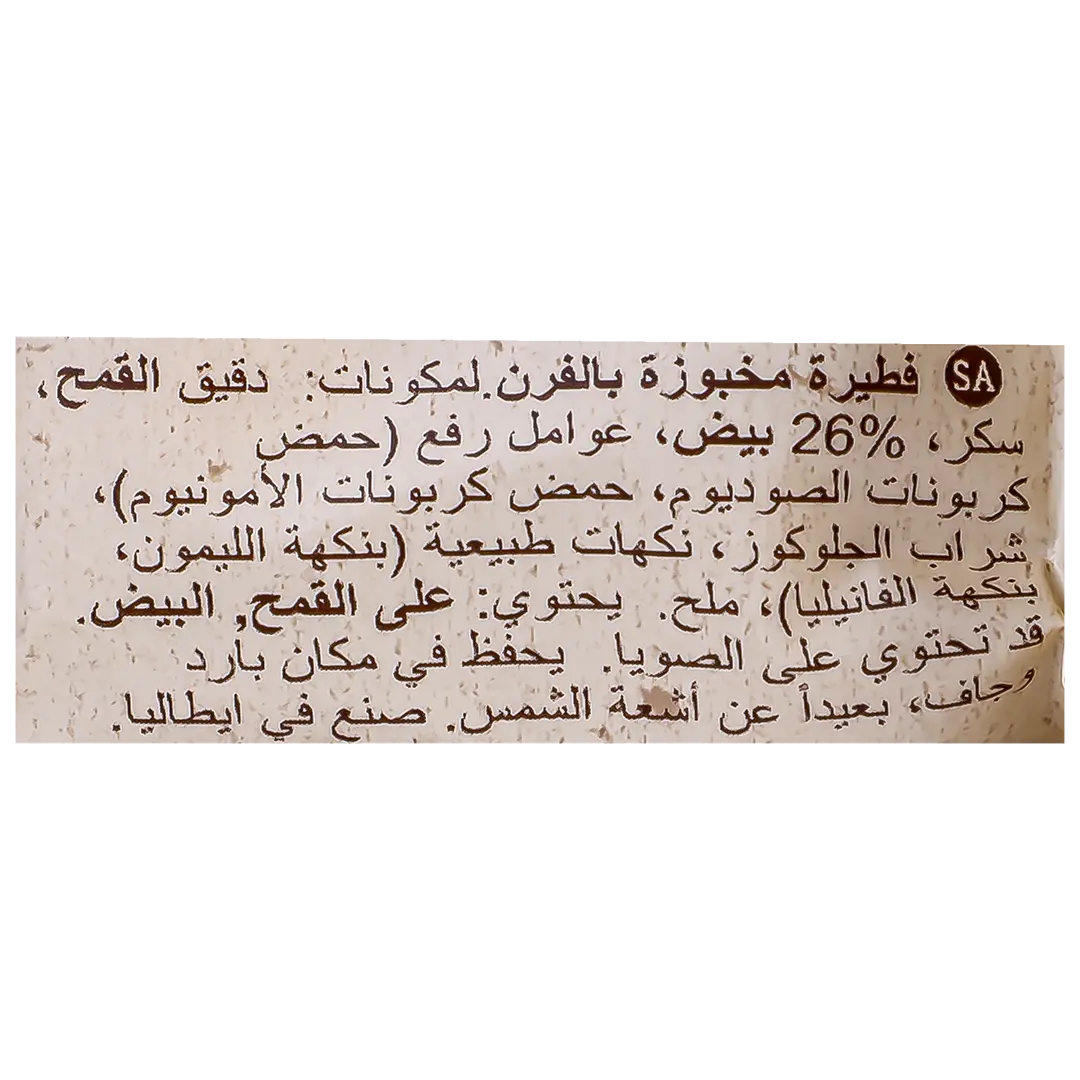 SA فطيرة مخبوزة بالفرن. لمكونات: دقيق القمح،
سكر، 26% بيض، عوامل رفع (حمض
كربونات الصوديوم، حمض كربونات الأمونيوم)،
شراب الجلوكوز، نكهات طبيعية (بنكهة الليمون،
بنكهة الفانيليا)، ملح. يحتوي: على القمح, البيض.
قد تحتوي على الصويا. يحفظ في مكان بارد
وجاف، بعيداً عن أشعة الشمس. صنع في ايطاليا.